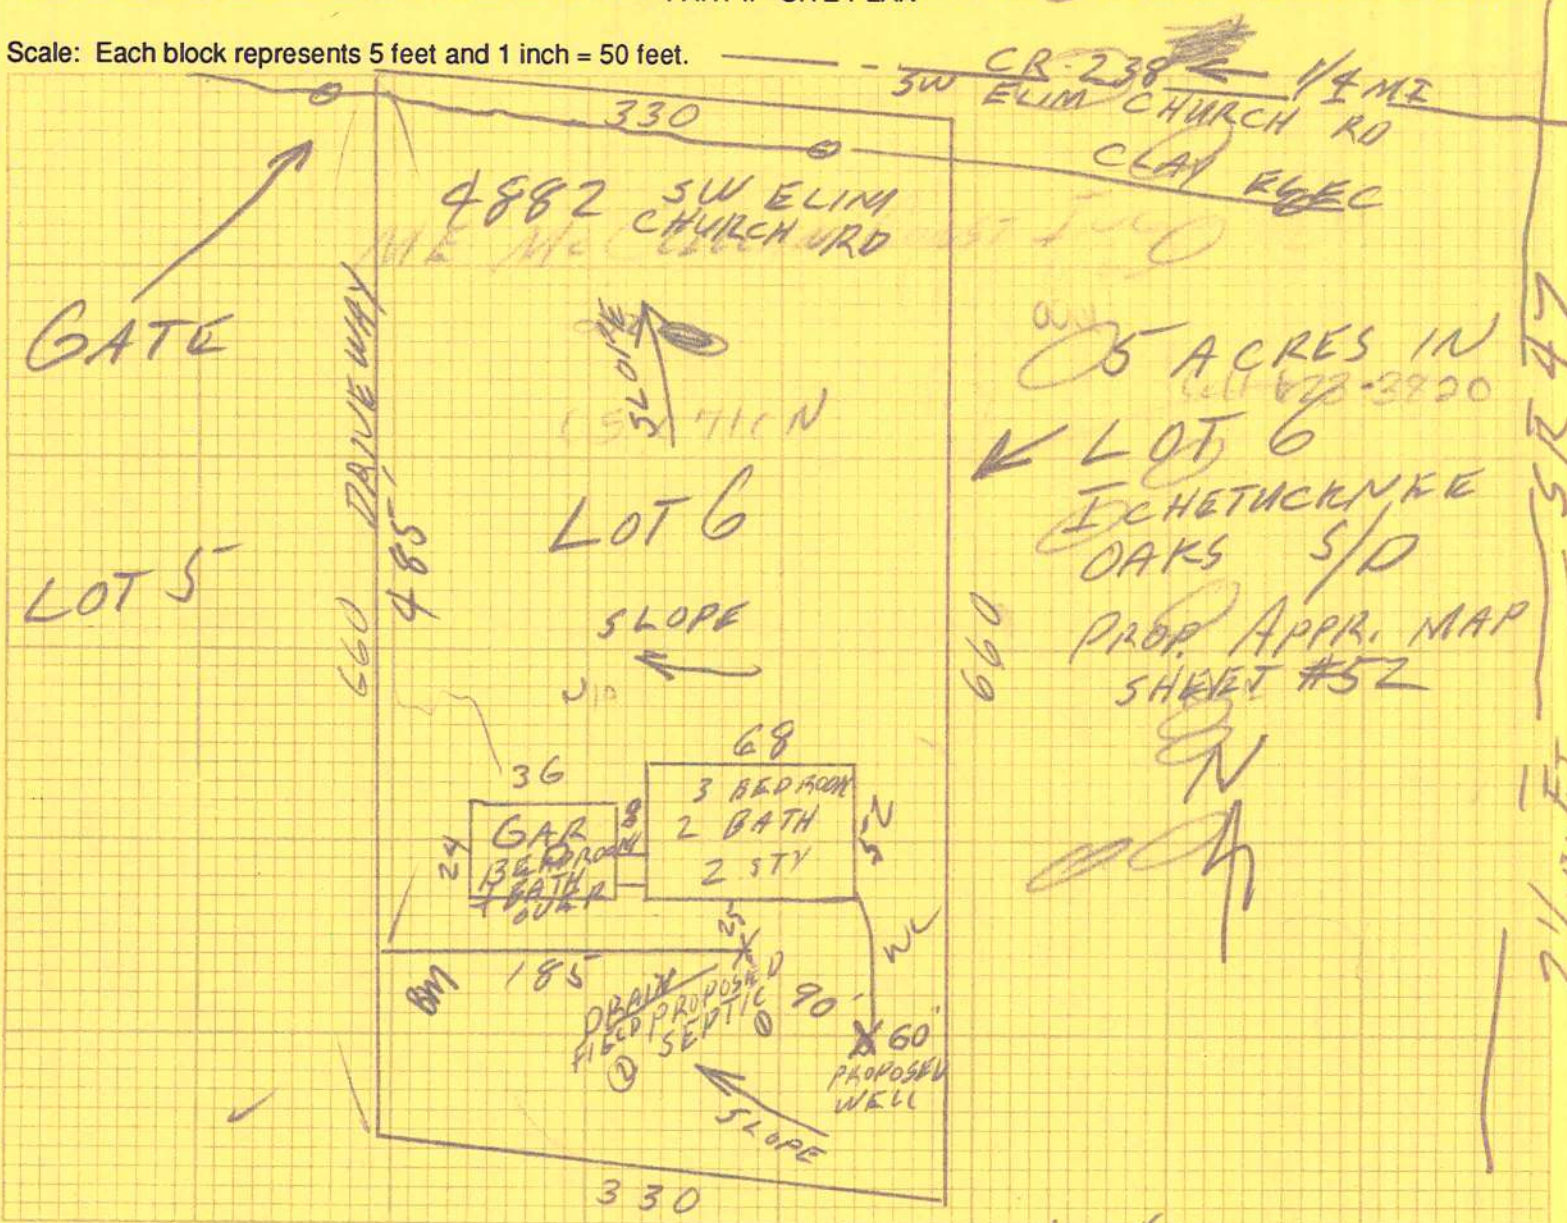 Scale: Each block represents 5 feet and 1 inch = 50 feet.
CR-238 ← 1/4 MI
SW ELIM CHURCH RD
330
CLAY
4882 SW ELIM
CHURCH RD
GATE
DRIVEWAY
SLOPE
5 ACRES IN
LOT 6
ICHETUCKNEE
OAKS S/D
PROP. APPR. MAP
SHEET #52
SR 47
LOT 6
485'
LOT 5
660
660
SLOPE
N
36
68
24
GAR
BEDROOM
1 BATH
OVER
8
3 BEDROOM
2 BATH
2 STY
52
25'
WL
185
BM
DRAIN
FIELD
PROPOSED
SEPTIC
1
2
90'
60'
PROPOSED
WELL
SLOPE
330